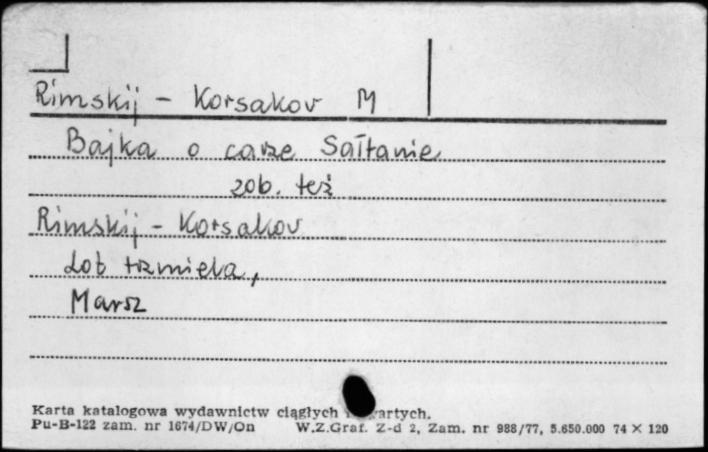 Rimskij - Korsakov M
Bajka o carze Sałtanie
zob. też
Rimskij - Korsakov
Lot trzmiela,
Marsz
Karta katalogowa wydawnictw ciągłych i
Pu-B-122 zam. nr 1674/DW/On W.Z.Graf. Z-d 2, Zam. nr 988/77, 5.650.000 74 × 120